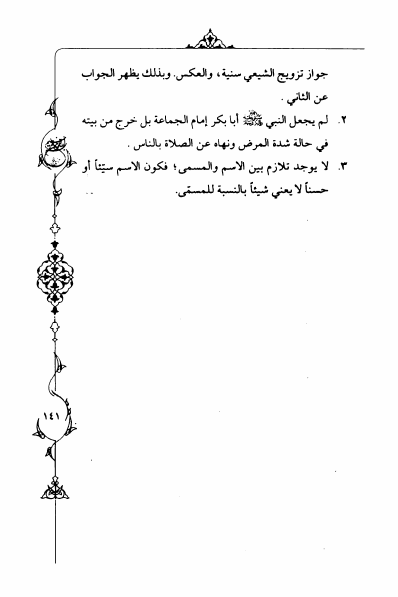 جواز تزويج الشيعي سنية، والعكس. وبذلك يظهر الجواب
عن الثاني.
٢. لم يجعل النبي ﷺ أبا بكر إمام الجماعة بل خرج من بيته
في حالة شدة المرض ونهاه عن الصلاة بالناس.
٣. لا يوجد تلازم بين الاسم والمسمى؛ فكون الاسم سيّئاً أو
حسناً لا يعني شيئاً بالنسبة للمسمّى.
١٤١